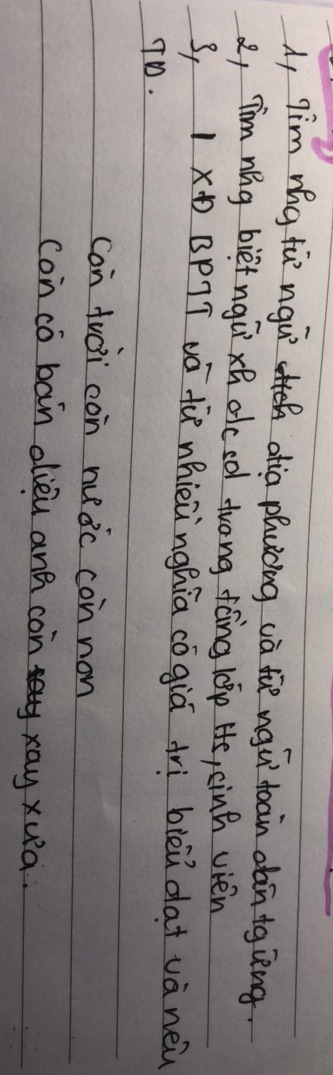 1, Tìm nhg từ ngữ địa phương và từ ngữ toàn dân tg ứng.
2, Tìm nhg biệt ngữ xh đc sd trong tầng lớp HS, sinh viên
3, 1 XĐ BPTT và từ nhiều nghĩa có giá trị biểu đạt và nêu
TD.
Còn trời còn nước còn non
Còn cô bán diệu anh còn say xay xưa.